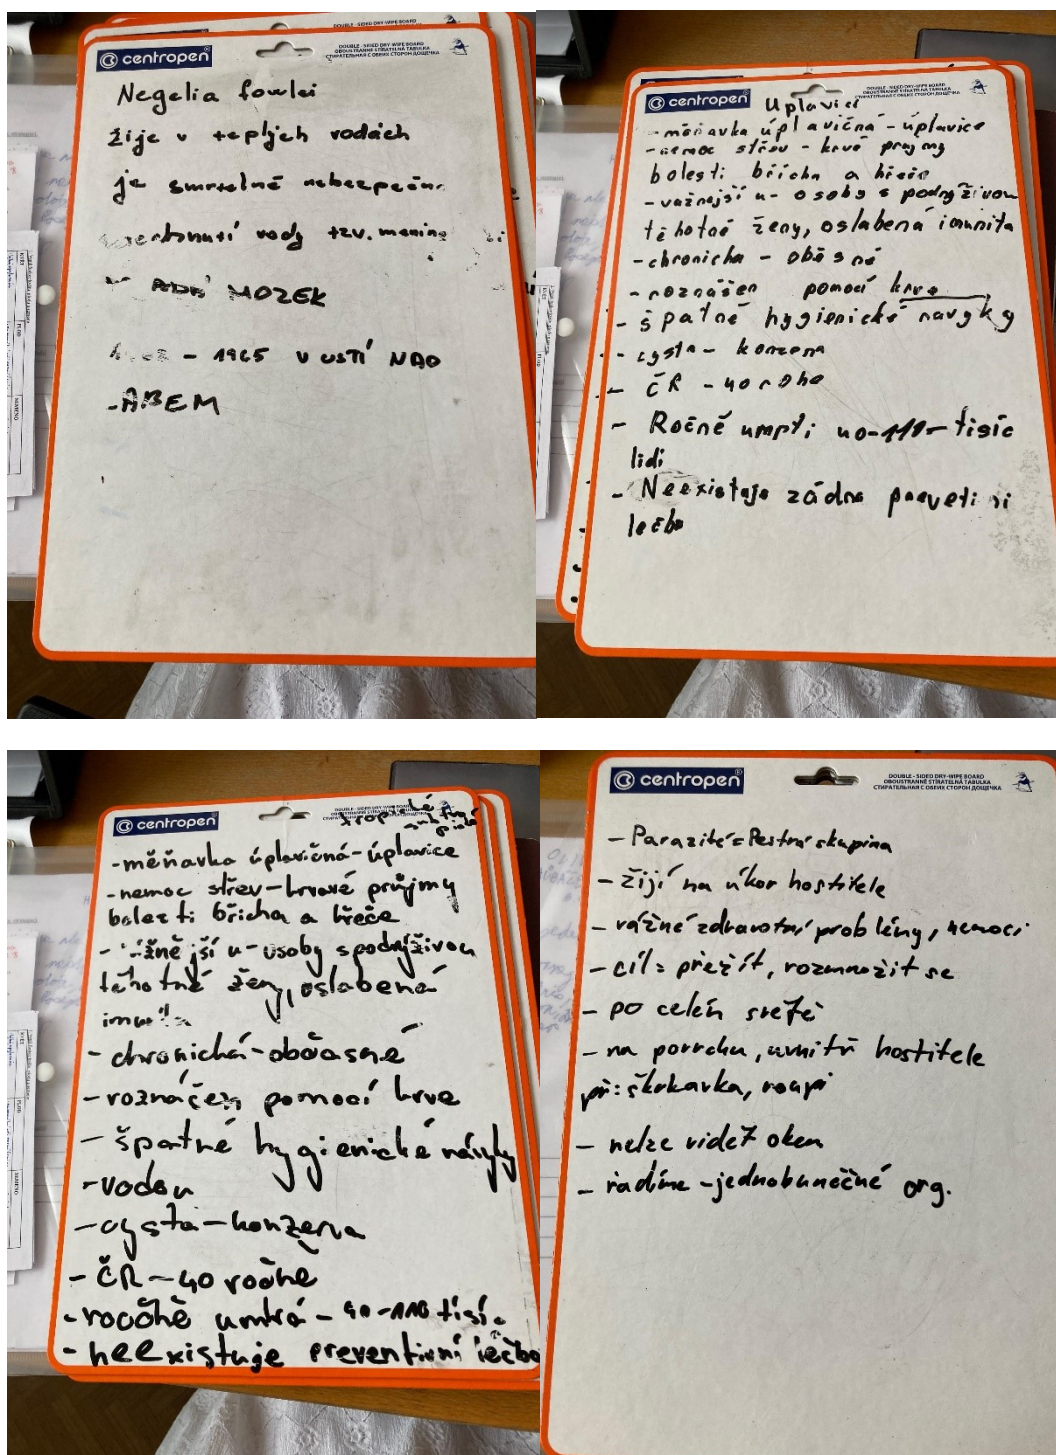 centropen
DOUBLE - SIDED DRY-WIPE BOARD
OBOUSTRANNĚ STÍRATELNÁ TABULKA
СТИРАТЕЛЬНАЯ С ОБЕИХ СТОРОН ДОЩЕЧКА
Negelia fowlei
žije v teplých vodách
je smrtelně nebezpečn
vody tzv. mening
MOZEK
- 1965 V USTÍ NAD
-ABEM
centropen
DOUBLE - SIDED DRY-WIPE BOARD
OBOUSTRANNĚ STÍRATELNÁ TABULKA
СТИРАТЕЛЬНАЯ С ОБЕИХ СТОРОН ДОЩЕЧКА
Uplavici
- měňavka úplavičná - úplavice
- nemoc střev - krvé prujmy
bolesti břicha a křeče
- važnejší u - osoby s podvyživou
těhotné ženy, oslabená imunita
- chronicka - oběsné
- roznášen pomocí krve
- špatné hygienické navyky
- cysta - konzena
- ČR - 40 roho
- Ročně umpti 40-110- tisíc
lidi
- Neexistuje zádna
lečba
centropen
DOUBLE - SIDED DRY-WIPE BOARD
OBOUSTRANNĚ STÍRATELNÁ TABULKA
СТИРАТЕЛЬНАЯ С ОБЕИХ СТОРОН ДОЩЕЧКА
tropické
- měňavka úplavičná - úplavice
- nemoc střev - krvavé průjmy
bolesti břicha a křeče
- u - osoby s podvýživou
těhotné ženy, oslabená
- chronická - občasné
- roznáčen pomocí krve
- špatné hygienické návyky
- vodou
- cysta - konzerva
- ČR - 40 ročně
- roočně umírá - 40-110 tisíc
- neexistuje preventivní léčba
centropen
DOUBLE - SIDED DRY-WIPE BOARD
OBOUSTRANNĚ STÍRATELNÁ TABULKA
СТИРАТЕЛЬНАЯ С ОБЕИХ СТОРОН ДОЩЕЧКА
- Parazité = Pestrá skupina
- žijí na úkor hostitele
- vážné zdravotní problémy, nemoci
- cíl = přežít, rozmnožit se
- po celém světě
- na povrchu, uvnitř hostitele
př: škrkavka, roupi
- nelze videť okem
- řadíme - jednobuněčné org.